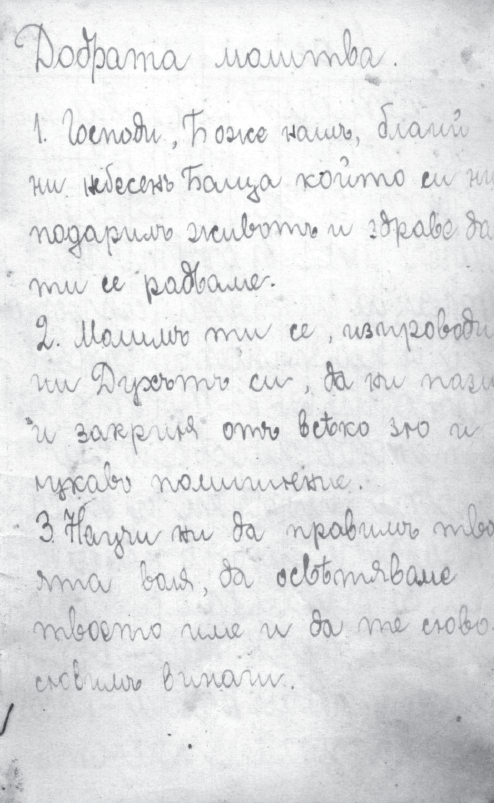 Добрата молитва.
1. Господи, Боже нашъ, благий
ни небесенъ Баща който си ни
подарилъ животъ и здраве да
ти се радваме.
2. Молимъ ти се, изпроводи
ни Духътъ си, да ни пази
и закриля отъ всѣко зло и
лукаво помишление.
3. Научи ни да правимъ тво
ята воля, да освѣтяваме
твоето име и да те слово
словимъ винаги.